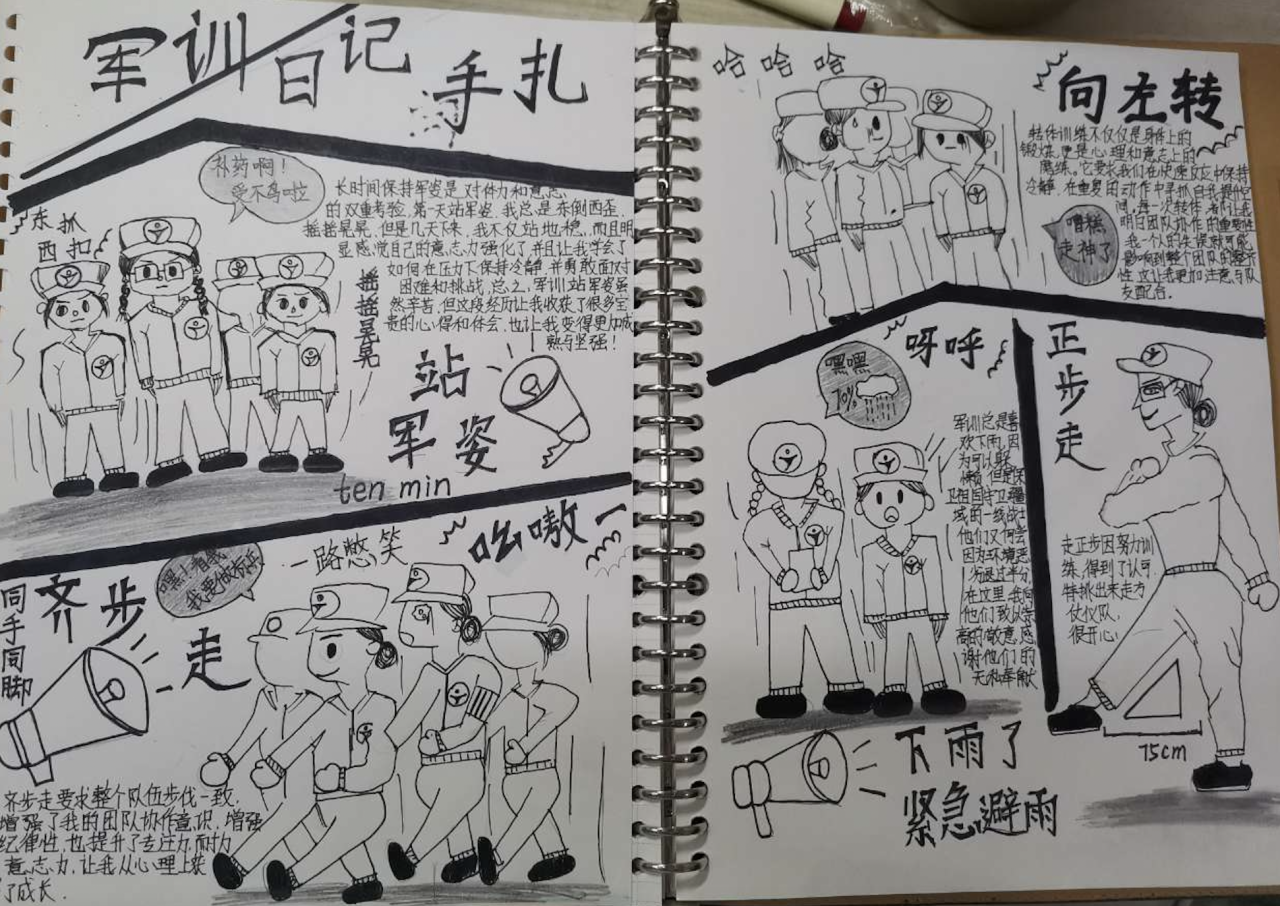 军训日记手扎
补药啊！
受不鸟啦
东抓
西扣
摇摇晃晃
长时间保持军姿是对体力和意志
的双重考验，第一天站军姿，我总是东倒西歪，
摇摇晃晃，但是几天下来，我不仅站地稳，而且明
显感觉自己的意志力强化了并且让我学会了
如何在压力下保持冷静，并勇敢面对
困难和挑战，总之，军训站军姿虽
然辛苦，但这段经历让我收获了很多宝
贵的心得和体会，也让我变得更加成
熟与坚强！
站
军姿
ten min
同手同脚
齐步
走
一路憋笑
吆嗷一
齐步走要求整个队伍步伐一致，
增强了我的团队协作意识，增强
纪律性，也提升了专注力，耐力
意志力，让我从心理上获
了成长．
哈哈哈
向左转
转体训练不仅仅是身体上的
锻炼，更是心理和意志上的
磨练。它要求我们在快速反应中保持
冷静，在重复的动作中寻找自我提升空
间，每一次转体，都让我
明白团队协作的重要性
我一个人的失误就可能
影响到整个团队的整齐
性，这让我更加注意与队
友配合．
嘈糕
走神了
嘿嘿
70%
呀呼
军训总是喜
欢下雨，因
为可以躲
懒，但是保
卫祖国守卫疆
域的一线战士
他们又何会
因为环境恶
劣退过半分，
在这里，我向
他们致以崇
高的敬意，感
谢他们的
无私奉献
下雨了
紧急避雨
正步走
走正步因努力训
练，得到了认可，
特挑出来走方
仗仪队，
很开心．
75cm